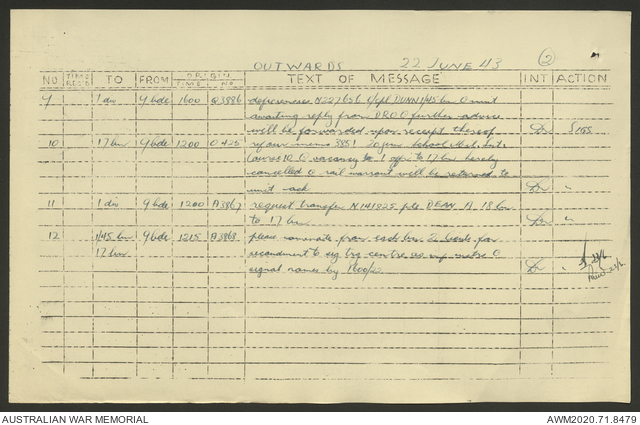 OUTWARDS 22 JUNE 43 (2)
NO. TIME REC'D TO FROM ORIGIN TIME NO. TEXT OF MESSAGE INT ACTION
1 div 9 bde 1600 A3886 deficiencies N227656 DUNN 1/45 bn O unit
awaiting reply from DRO O further advice
will be forwarded upon receipt thereof
10 17 bn 9 bde 1200 O 425 refour memo 3851 school
vacancy to 1 offr to 17 bn hereby
cancelled O rail warrant will be returned to
unit ack
11 1 div 9 bde 1200 A3867 request transfer N141825 pte DEAN A. 18 bn
to 17 bn
12 1/45 bn 9 bde 1215 A3868 please nominate from each bn 2 for
17 bn secondment to sig trg centre as O
signal names by 1600/22
AUSTRALIAN WAR MEMORIAL AWM2020.71.8479